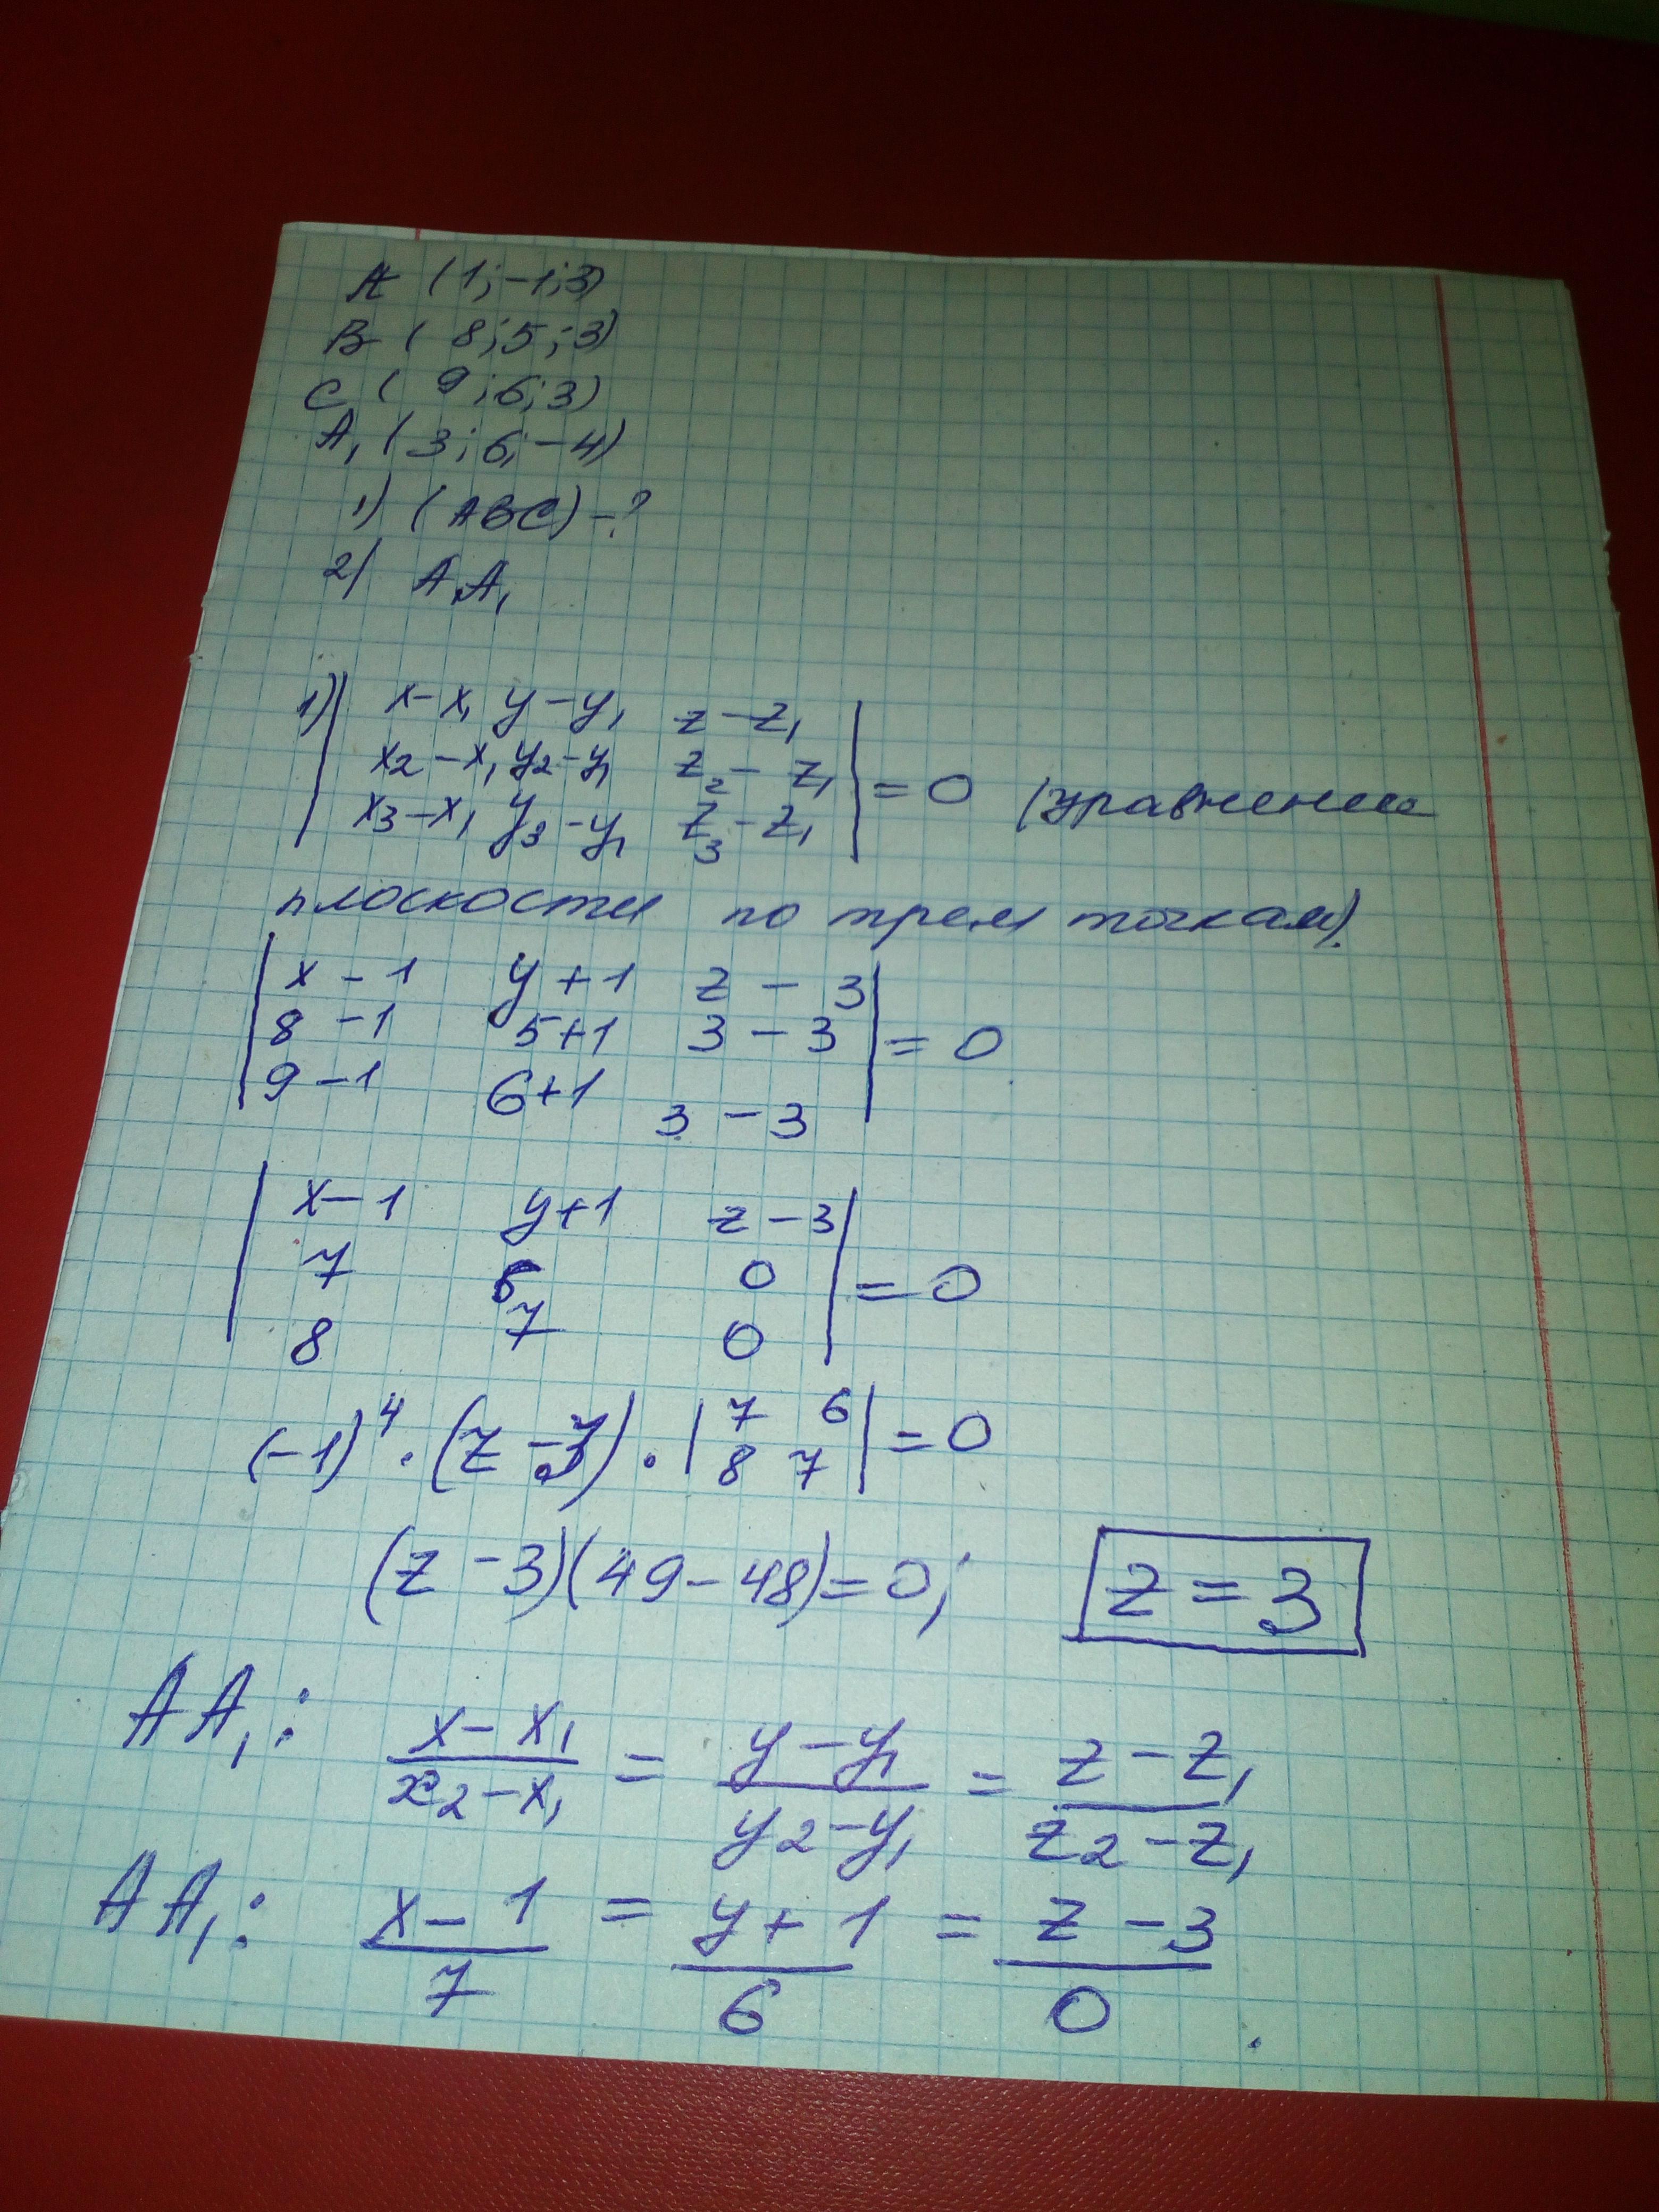 A (1;-1;3)
B ( 8;5;3)
C ( 9;6;3)
A₁ (3;6;-4)
1) (ABC) -?
2) AA₁
1) | x-x₁ y-y₁ z-z₁ |
| x₂-x₁ y₂-y₁ z₂-z₁ | = 0 (уравнение
| x₃-x₁ y₃-y₁ z₃-z₁ |
плоскости по трем точкам).
| x-1 y+1 z-3 |
| 8-1 5+1 3-3 | = 0
| 9-1 6+1 3-3 |
| x-1 y+1 z-3 |
| 7 6 0 | = 0
| 8 7 0 |
(-1)⁴ · (z-3) · | 7 6 | = 0
| 8 7 |
(z-3)(49-48)=0; z=3
AA₁: (x-x₁)/(x₂-x₁) = (y-y₁)/(y₂-y₁) = (z-z₁)/(z₂-z₁)
AA₁: (x-1)/7 = (y+1)/6 = (z-3)/0.